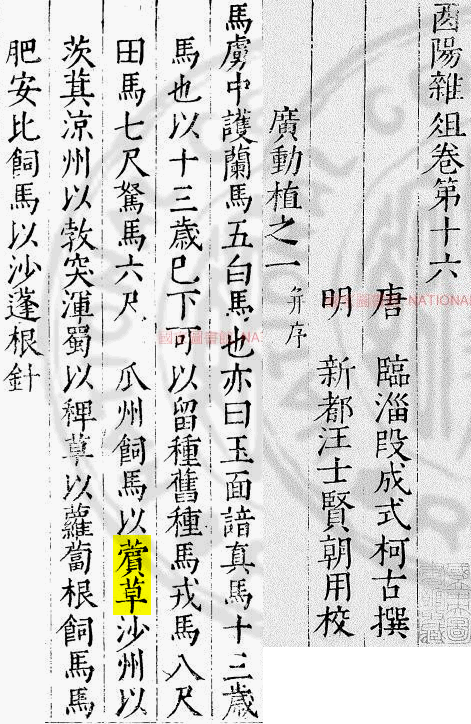 酉陽雜俎卷第十六
唐 臨淄段成式柯古撰
明 新都汪士賢朝用校
廣動植之一 并序
馬虜中護蘭馬五白馬也亦曰玉面諳真馬十三歲
馬也以十三歲巳下可以留種舊種馬戎馬八尺
田馬七尺駑馬六尺 瓜州飼馬以薲草沙州以
茨萁涼州以敦突渾蜀以稗草以蘿蔔根飼馬馬
肥安比飼馬以沙蓬根針